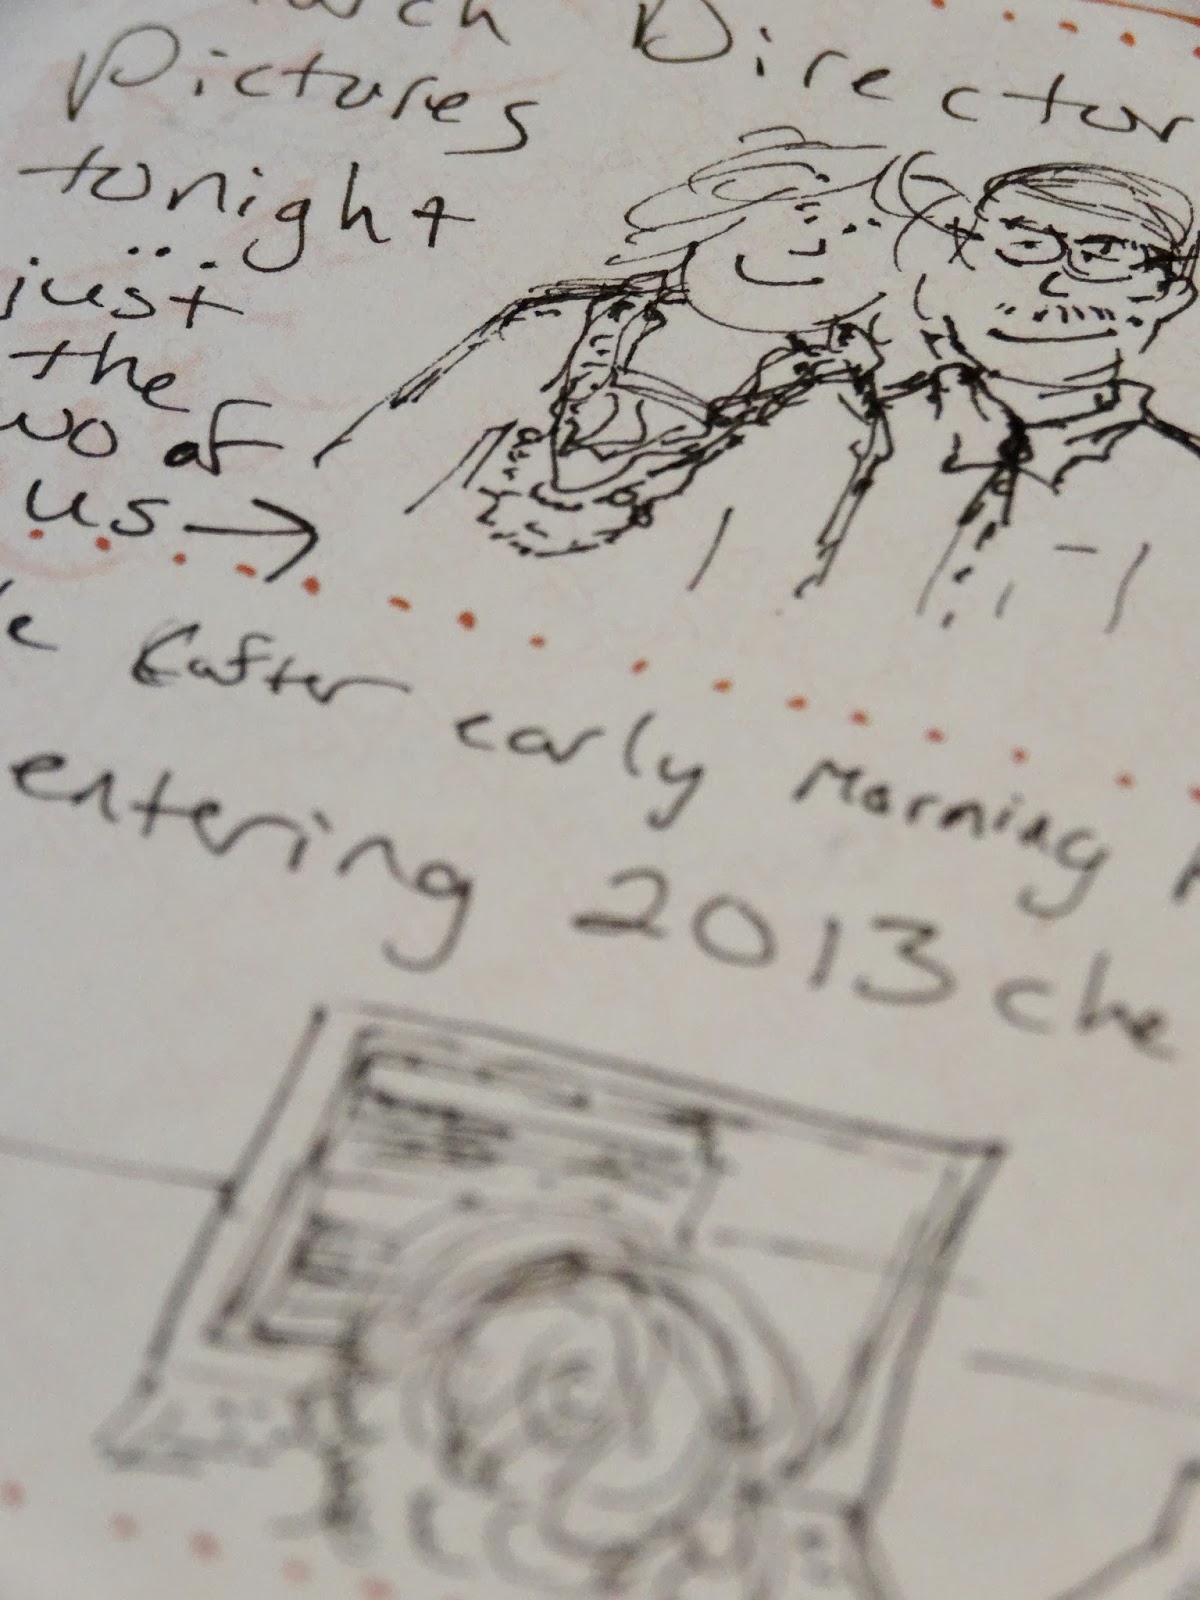 Director
Pictures
tonight
just
the
wo of
us →
early Morning
entering 2013 che